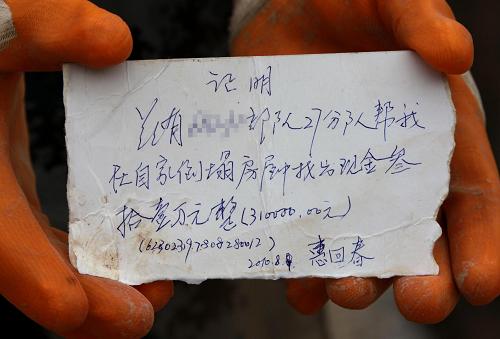 证明
兹有部队27分队帮我
在自家倒塌房屋中找出现金叁
拾壹万元整(310000.00元)
(623023197808280012)
2010.8.9. 惠回春